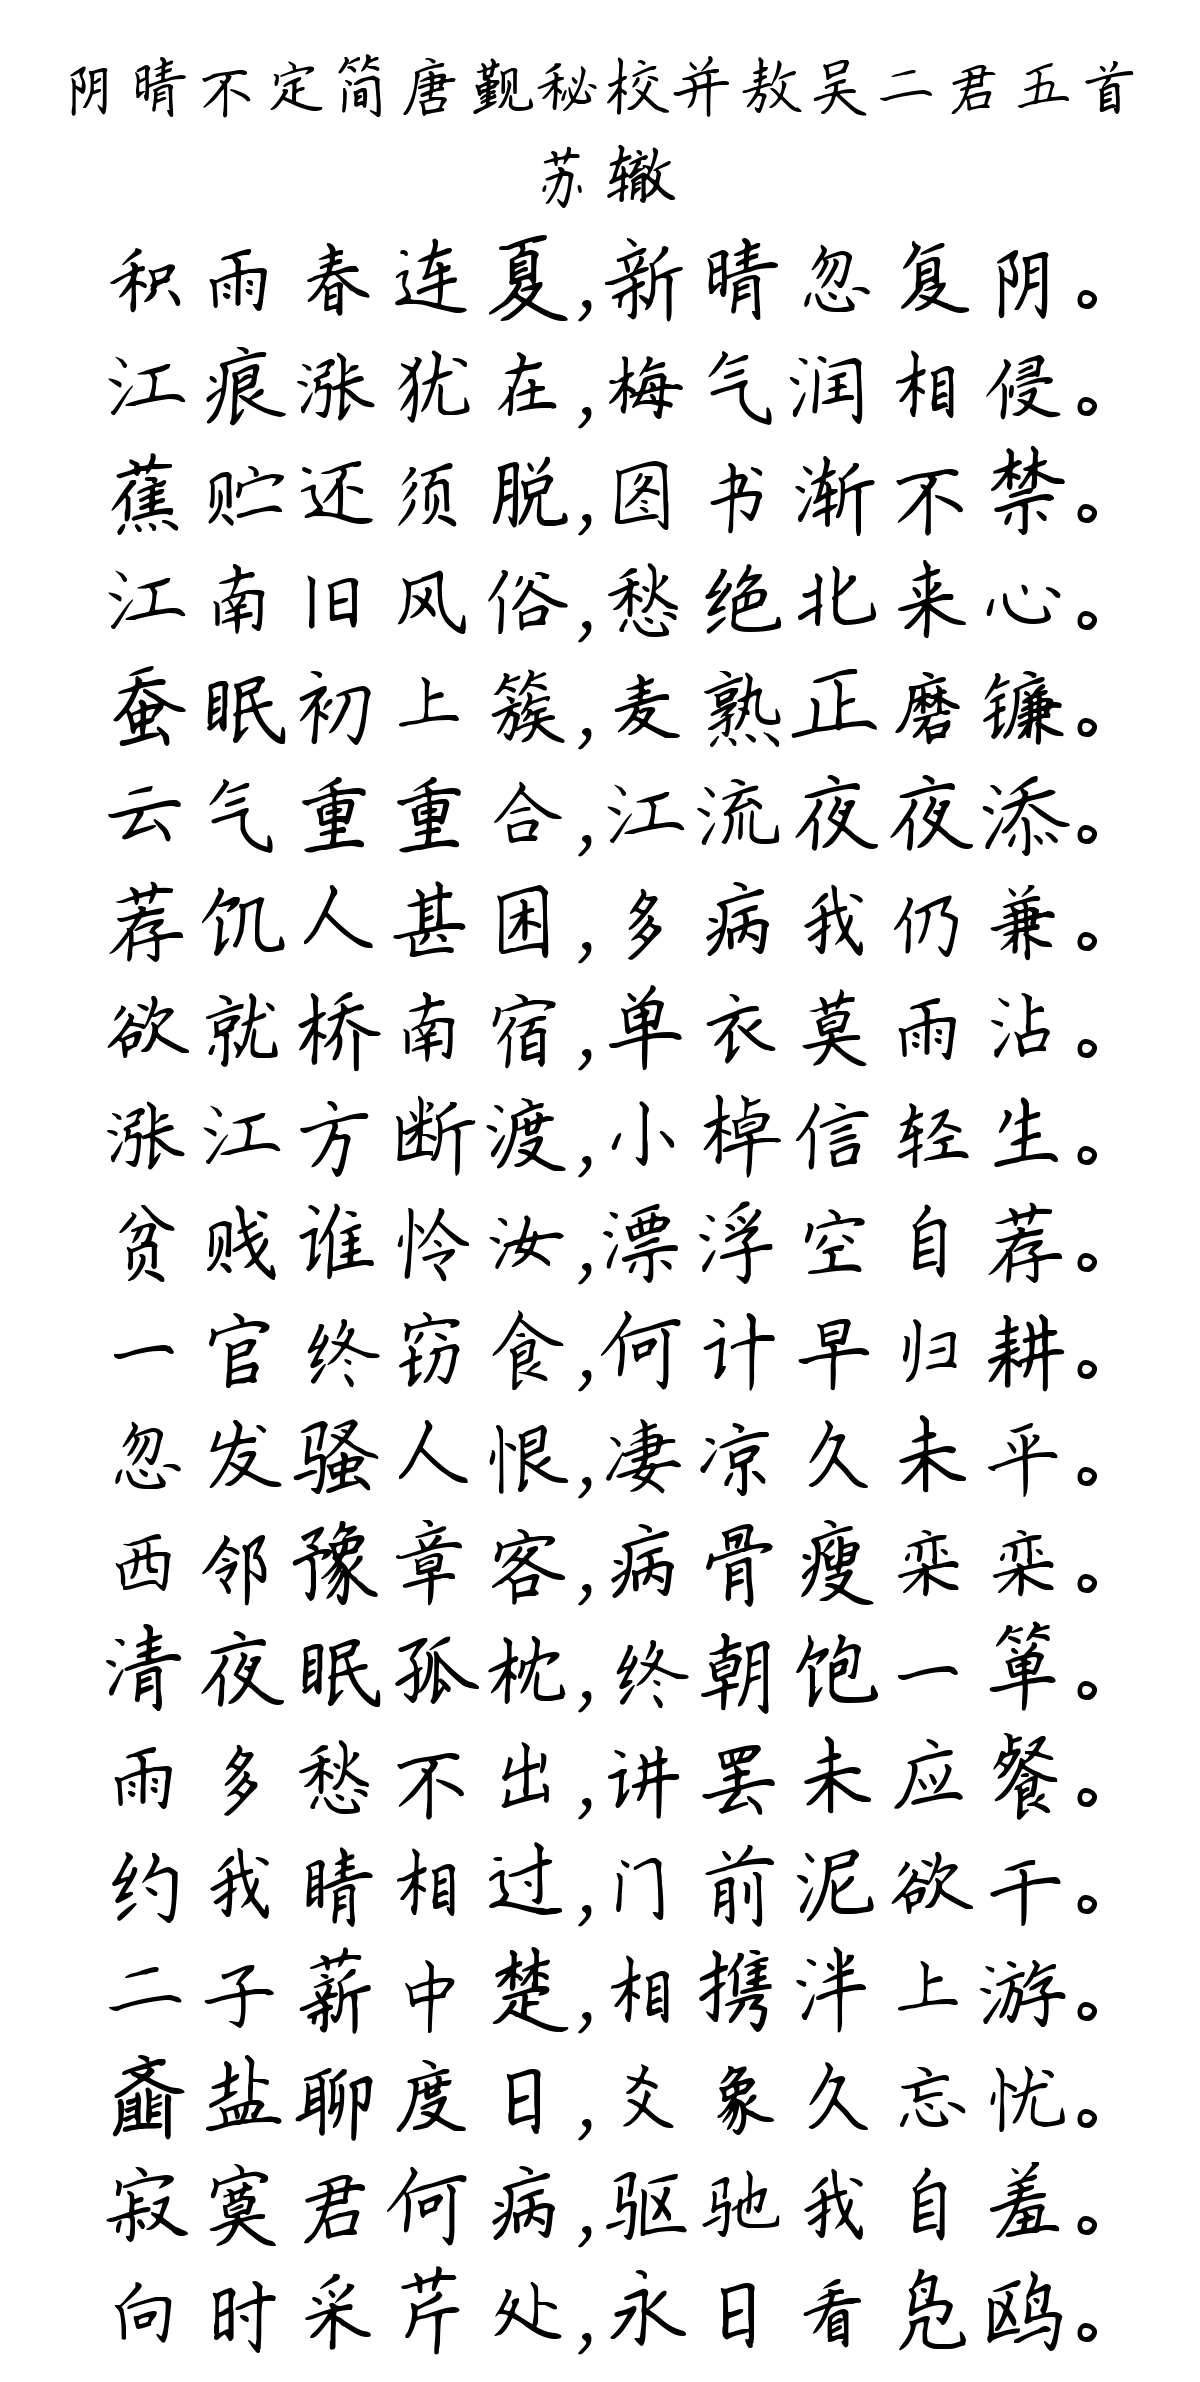 阴晴不定简唐觐秘校并敖吴二君五首
苏辙
积雨春连夏,新晴忽复阴。
江痕涨犹在,梅气润相侵。
蕉贮还须脱,图书渐不禁。
江南旧风俗,愁绝北来心。
蚕眠初上簇,麦熟正磨镰。
云气重重合,江流夜夜添。
荐饥人甚困,多病我仍兼。
欲就桥南宿,单衣莫雨沾。
涨江方断渡,小棹信轻生。
贫贱谁怜汝,漂浮空自荐。
一官终窃食,何计早归耕。
忽发骚人恨,凄凉久未平。
西邻豫章客,病骨瘦栾栾。
清夜眠孤枕,终朝饱一箪。
雨多愁不出,讲罢未应餐。
约我晴相过,门前泥欲干。
二子薪中楚,相携泮上游。
齑盐聊度日,爻象久忘忧。
寂寞君何病,驱驰我自羞。
向时采芹处,永日看凫鸥。